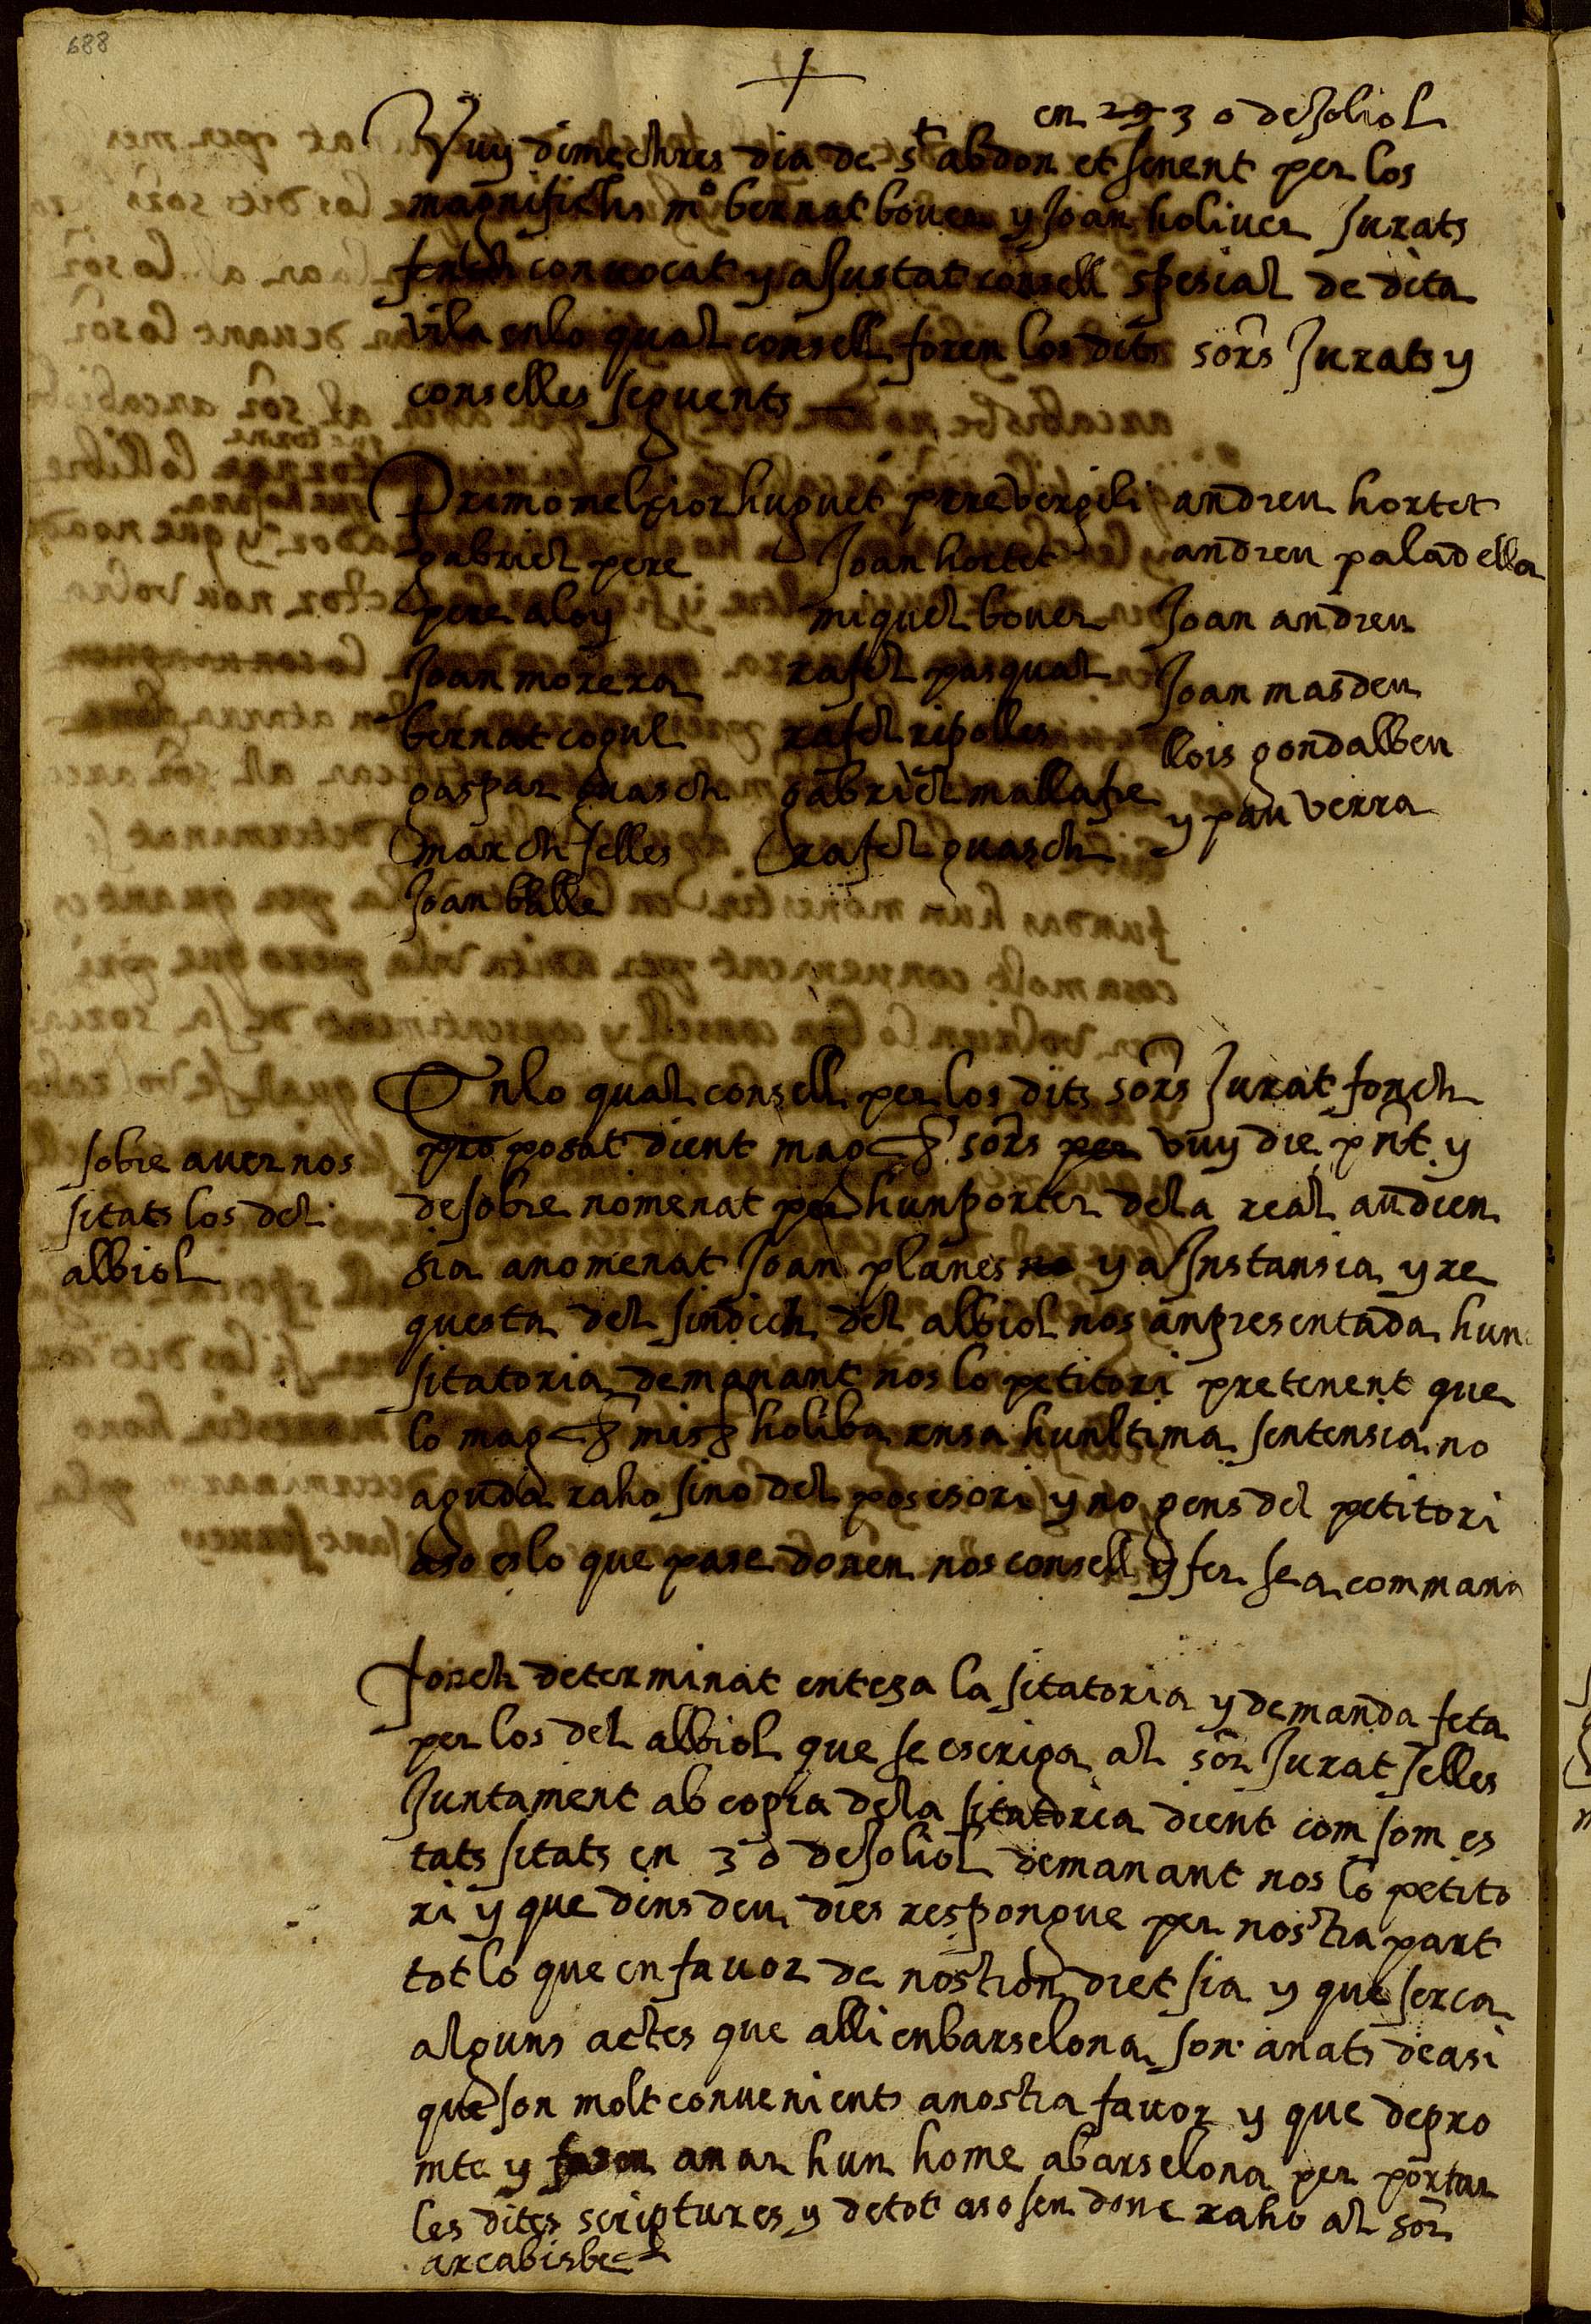 688
en 29 30 de Joliol
Vuy dimechres dia de st abdon et senent per los
magnifichs mo bernat bover y Joan holiver Jurats
fonch convocat y aJustat consell spesial de dita
vila en lo qual consell foren los dits sors Jurats y
conselles seguents
Primo melcior huguet
gabriel pere
pere aloy
Joan morera
bernat cogul
gaspar guasch
march selles
Joan batlle
pere vergili
Joan hortet
miquel bover
rafel pasqual
rafel ripolles
gabriel mallafre
rafel guasch
andreu hortet
andreu paladella
Joan andreu
Joan masdeu
llois gondalbeu
y pau verra
En lo qual consell per los dits sors Jurat fonch
sobre aver nos
sitats los del
albiol
proposat dient mag sors per vuy die pnt y
desobre nomenat per hun porter de la real audien
sia anomenat Joan planes no y a Instansia y re
questa del sindich del albiol nos an presentada hun
sitatoria demanant nos lo petitori pretenent que
lo mag mis holiba en sa hultima sentensia no
aguda raho sino del posesori y no gens del petitori
aso es lo que pase donen nos consell y fer sea comman
Fonch determinat entesa la sitatoria y demanda feta
per los del albiol que se escriga al sor Jurat selles
Juntament ab copia de la sitatoria dient com som es
tats sitats en 30 de Joliol demanant nos lo petito
ri y que dins deu dies respongue per nostra part
tot lo que en favor de nostron dret sia y que serca
alguns actes que alli en barselona son anats de asi
que son molt convenients a nostra favor y que de pro
mte y anar hun home a barselona per portar
les dites scriptures y de tot aso sen done raho al sor
arcabisbe